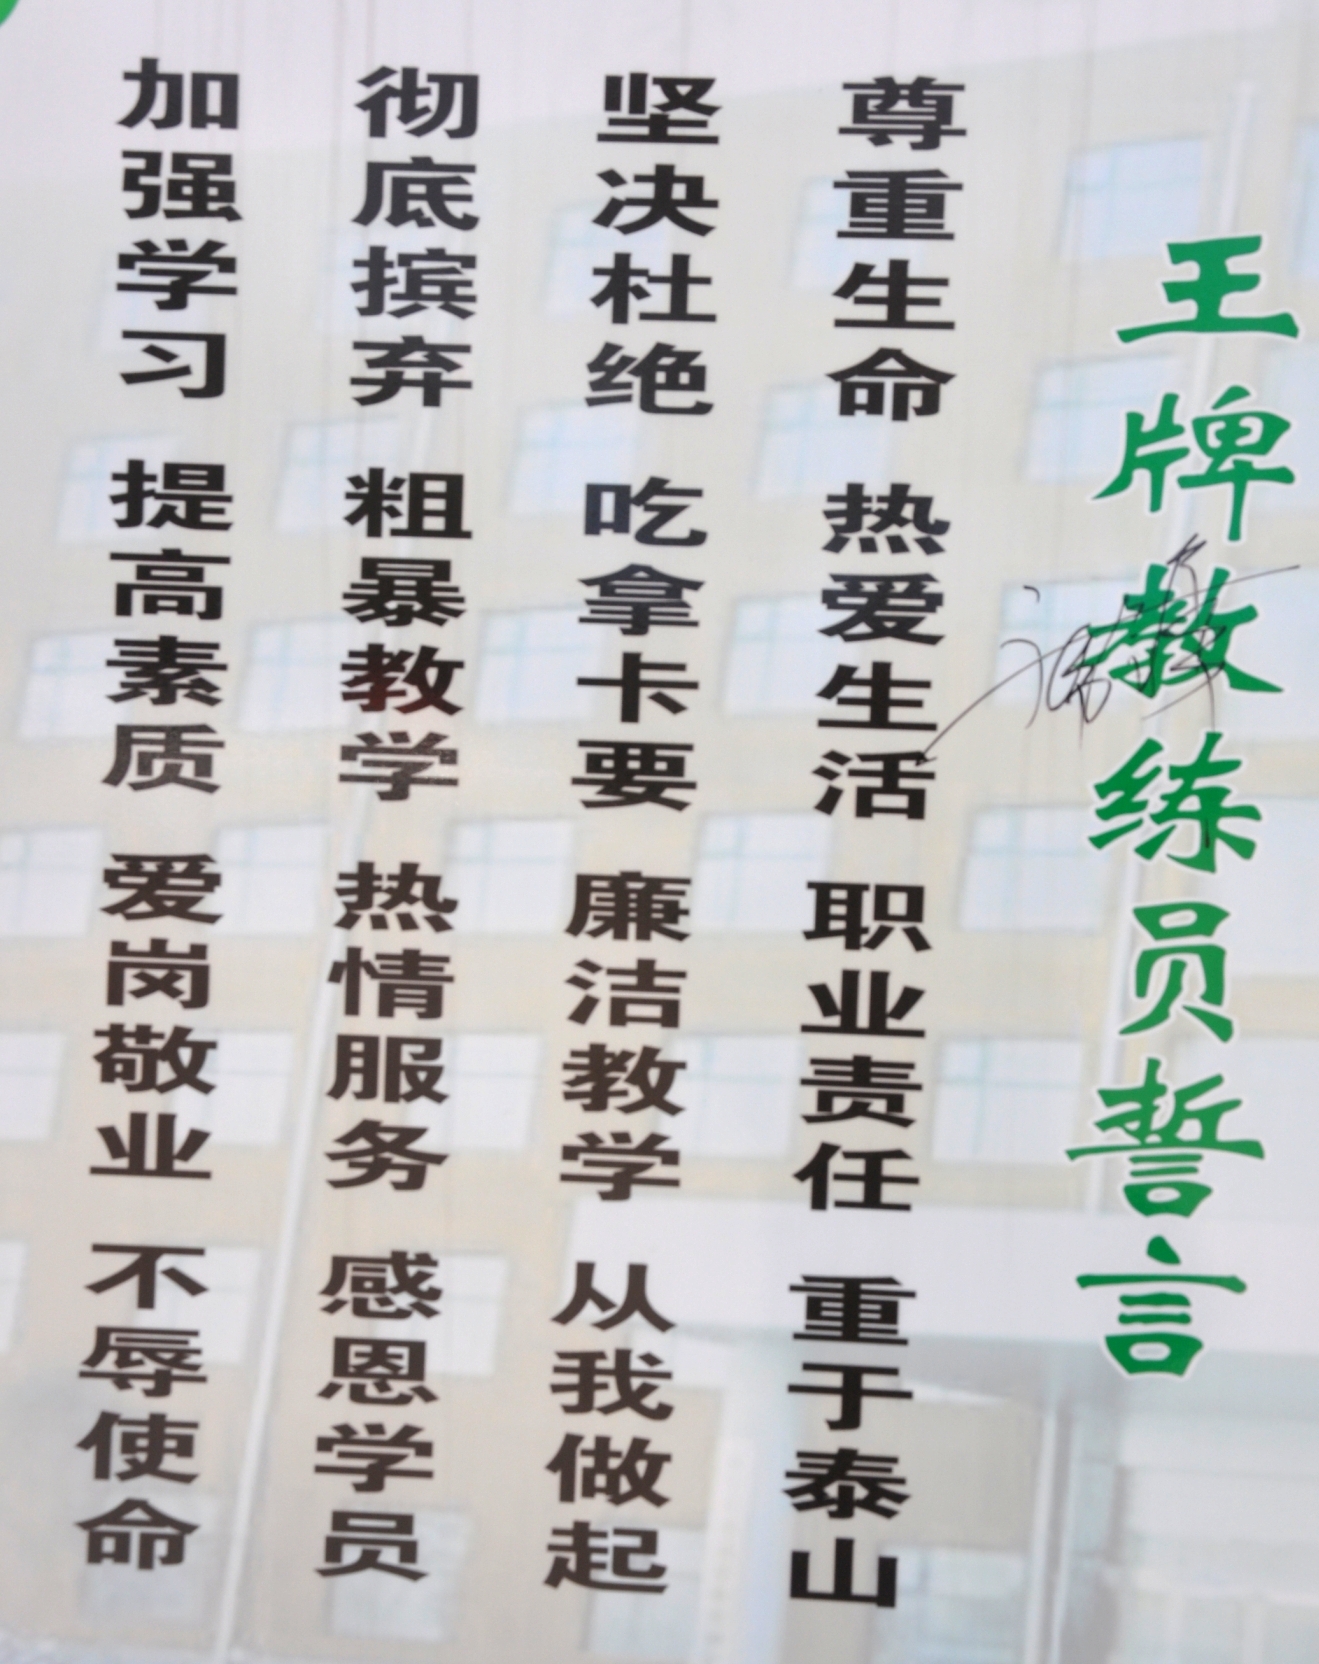 王牌教练员誓言
尊重生命 热爱生活 职业责任 重于泰山
坚决杜绝 吃拿卡要 廉洁教学 从我做起
彻底摈弃 粗暴教学 热情服务 感恩学员
加强学习 提高素质 爱岗敬业 不辱使命